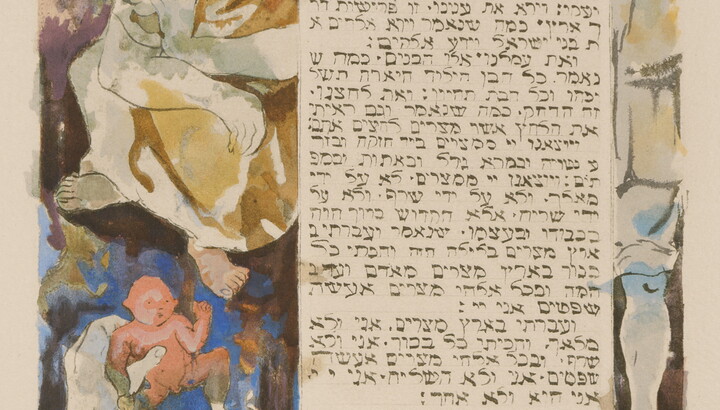 וירא את ענינו. זו פרישות דר
ך ארץ. כמה שנאמר וירא אלהים א
ת בני ישראל וידע אלהים:
ואת עמלנו. אלו הבנים. כמה ש
נאמר. כל הבן הילוד היארה תשל
יכהו וכל הבת תחיון: ואת לחצנו.
זה הדחק. כמה שנאמר וגם ראיתי
את הלחץ אשר מצרים לחצים אתם:
ויוצאנו יי ממצרים ביד חזקה ובזר
ע נטויה ובמרא גדל ובאתות ובמפ
תים: ויוצאנו יי ממצרים. לא על ידי
מלאך. ולא על ידי שרף. ולא על
ידי שליח. אלא הקדוש ברוך הוא
בכבודו ובעצמו. שנאמר ועברתי ב
ארץ מצרים בלילה הזה והכתי כל
בכור בארץ מצרים מאדם ועד ב
המה ובכל אלהי מצרים אעשה
שפטים אני יי:
ועברתי בארץ מצרים. אני ולא
מלאך. והכיתי כל בכור. אני ולא
שרף. ובכל אלהי מצרים אעשה
שפטים. אני ולא השליח. אני יי
אני הוא ולא אחר: